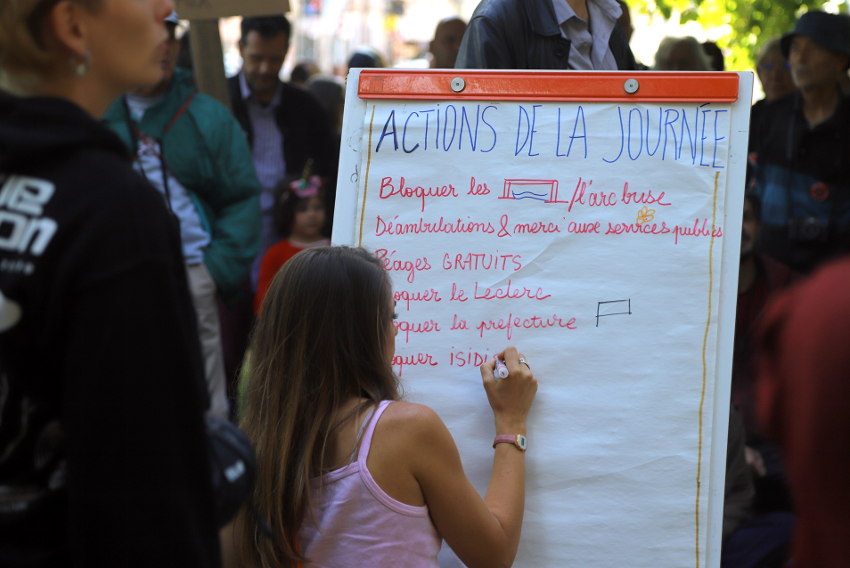 ACTIONS DE LA JOURNÉE
Bloquer les /l'arc buse
Déambulations & merci aux services publics
Péages GRATUITS
oquer le Leclerc
oquer la prefecture
oquer ISIDI